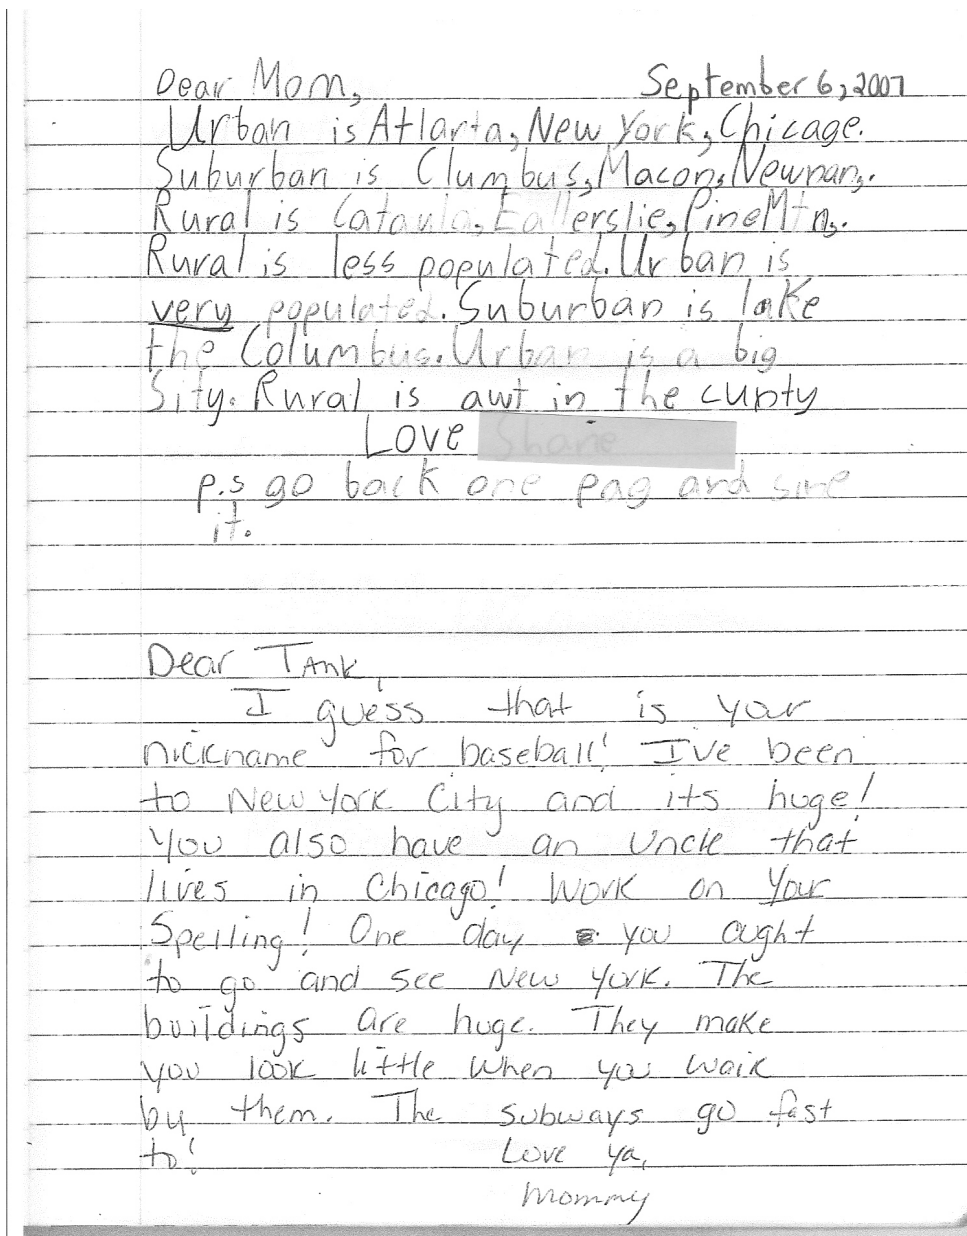 Dear Mom, September 6, 2007
Urban is Atlarta, New York, Chicage.
Suburban is Clumbus, Macon, Newnan,.
Rural is Cataula, Eallerslie, Pine Mtn,.
Rural is less populated. Urban is
very populated. Suburban is lake
the Columbus. Urban is a big
Sity. Rural is awt in the cunty
Love Shane
p.s go back one pag and sine
it.
Dear Tank,
I guess that is your
nickname for baseball! I've been
to New York City and its huge!
You also have an Uncle that
lives in Chicago! Work on your
Spelling! One day you ought
to go and see New York. The
buildings are huge. They make
you look little when you walk
by them. The subways go fast
to!
Love ya,
Mommy